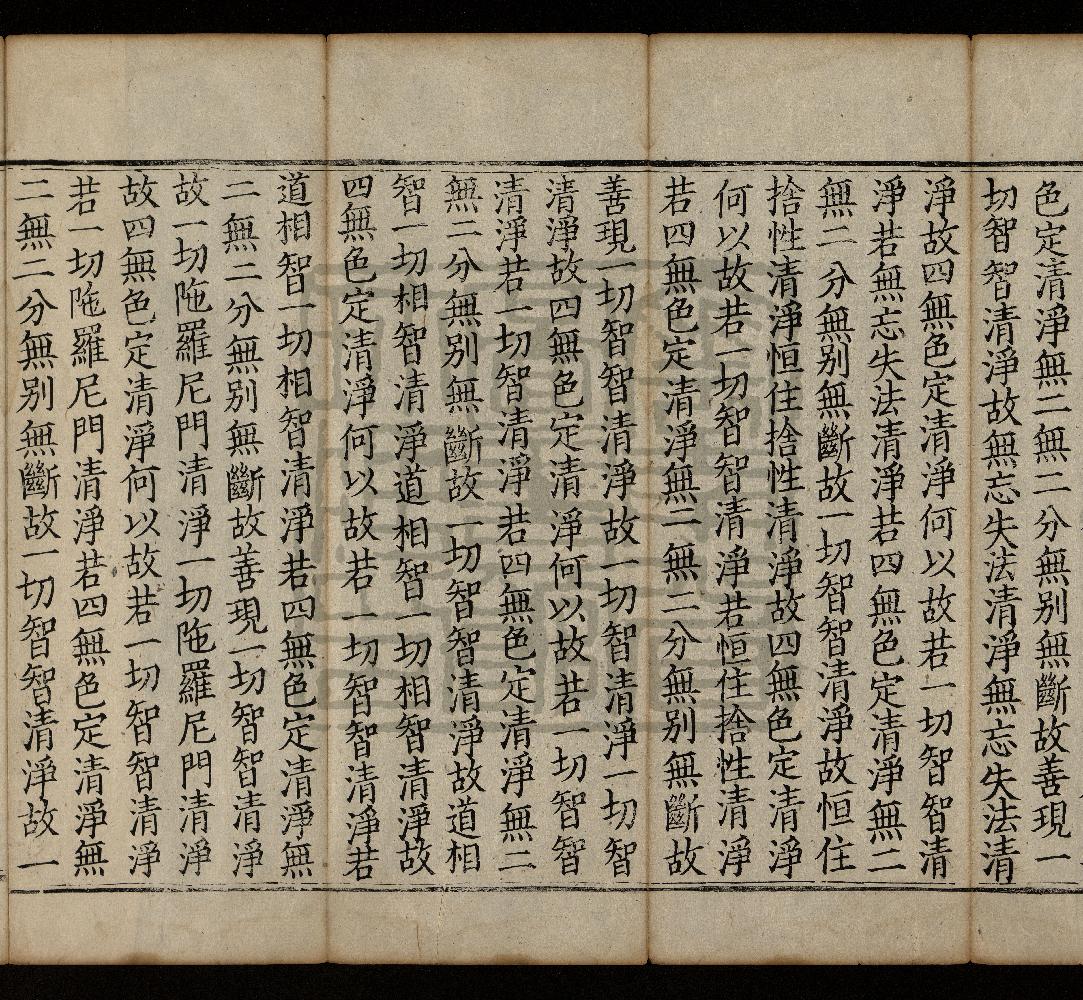 色定清淨無二無二分無別無斷故善現一
切智智清淨故無忘失法清淨無忘失法清
淨故四無色定清淨何以故若一切智智清
淨若無忘失法清淨若四無色定清淨無二
無二分無別無斷故一切智智清淨故恒住
捨性清淨恒住捨性清淨故四無色定清淨
何以故若一切智智清淨若恒住捨性清淨
若四無色定清淨無二無二分無別無斷故
善現一切智智清淨故一切智清淨一切智
清淨故四無色定清淨何以故若一切智智
清淨若一切智清淨若四無色定清淨無二
無二分無別無斷故一切智智清淨故道相
智一切相智清淨道相智一切相智清淨故
四無色定清淨何以故若一切智智清淨若
道相智一切相智清淨若四無色定清淨無
二無二分無別無斷故善現一切智智清淨
故一切陁羅尼門清淨一切陁羅尼門清淨
故四無色定清淨何以故若一切智智清淨
若一切陁羅尼門清淨若四無色定清淨無
二無二分無別無斷故一切智智清淨故一